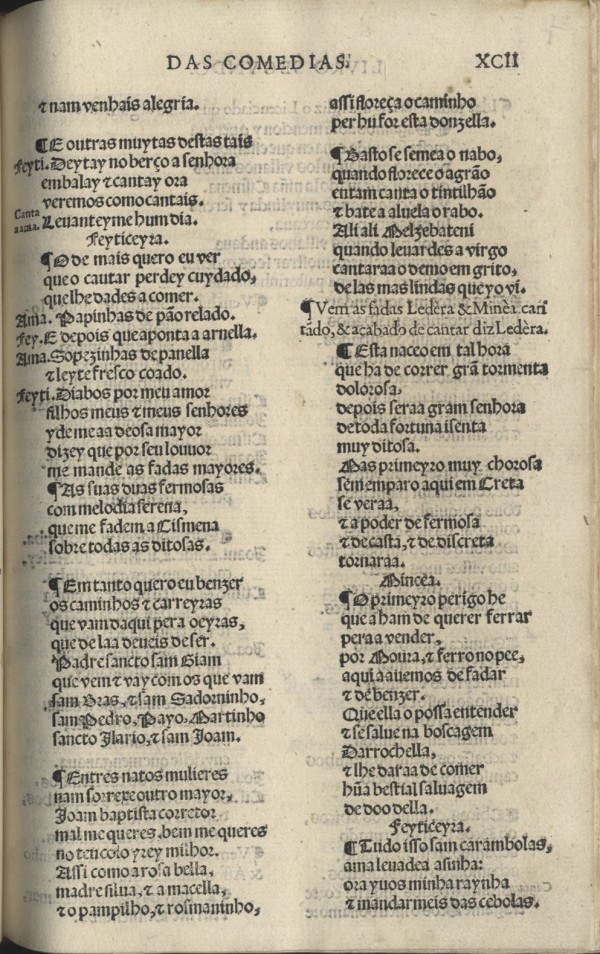 DAS COMEDIAS. XCII
⁊ nam venhais alegria.
¶E outras muytas destas tais
Feyti. Deytay no berço a senhora
embalay ⁊ cantay ora
veremos como cantais.
Canta a ama. Leuanteyme hum dia.
Feyticeyra.
¶O de mais quero eu ver
que o cautar perdey cuydado,
que lhe dades a comer.
Ama. Papinhas de pão relado.
Fey. E depois que aponta a arnella.
Ama. Sopezinhas de panella
⁊ leyte fresco coado.
Feyti. Diabos por meu amor
filhos meus ⁊ meus senhores
yde me aa deosa mayor
dizey que por seu louuor
me mande as fadas mayores.
¶As suas duas fermosas
com melodia serena,
que me fadem a Cismena
sobre todas as ditosas.
¶Em tanto quero eu benzer
os caminhos ⁊ carreyras
que vam daqui pera oeyras,
que de laa deueis de ser.
Padre sancto sam Giam
que vem ⁊ vay com os que vam
sam Bras, ⁊ sam Sadorninho,
sam Pedro, Payo, Martinho
sancto Ilario, ⁊ sam Joam.
¶Entres natos mulieres
nam sorrexe outro mayor,
Joam baptista corretor
mal me queres, bem me queres
no ten colo yrey milhor.
Assi como a rosa bella,
madre silua, ⁊ a macella,
⁊ o pampilho, ⁊ rosmaninho,
assi floreça o caminho
per hu for esta donzella.
¶Basto se semea o nabo,
quando florece o agrão
entam canta o tintilhão
⁊ bate a aluela o rabo.
Ali ali Melzebateni
quando leuardes a virgo
cantaraa o demo em grito,
de las mas lindas que yo vi.
¶Vem as fadas Ledèra & Minèa can
tādo, & acabado de cantar diz Ledèra.
¶Esta naceo em tal hora
que ha de correr grā tormenta
dolorosa,
depois seraa gram senhora
de toda fortuna isenta
muy ditosa.
Mas primeyro muy chorosa
sem emparo aqui em Creta
se veraa,
⁊ a poder de fermosa
⁊ de casta, ⁊ de discreta
tornaraa.
Mincèa.
¶O primeyro perigo he
que a ham de querer ferrar
pera a vender,
por Moura, ⁊ ferro no pee,
aqui a auemos de fadar
⁊ de benzer.
Que ella o possa entender
⁊ se salue na boscagem
Darrochella,
⁊ lhe daraa de comer
hūa bestial saluagem
de doo della.
Feyticeyra.
¶Tudo isso sam carambolas,
ama leuadea asinha:
ora yuos minha raynha
⁊ mandarmeis das cebolas.